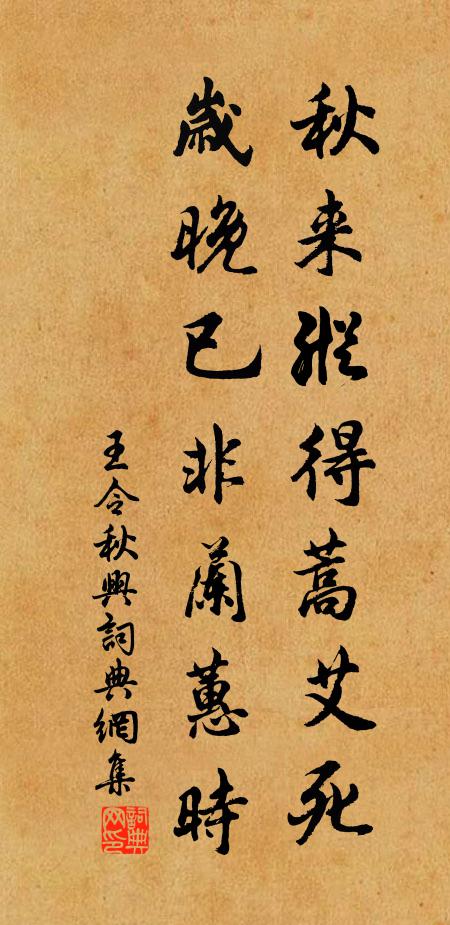 秋来縱得蒿艾死
歲晚已非蘭蕙時
王令秋興詞典網集
詞典网印